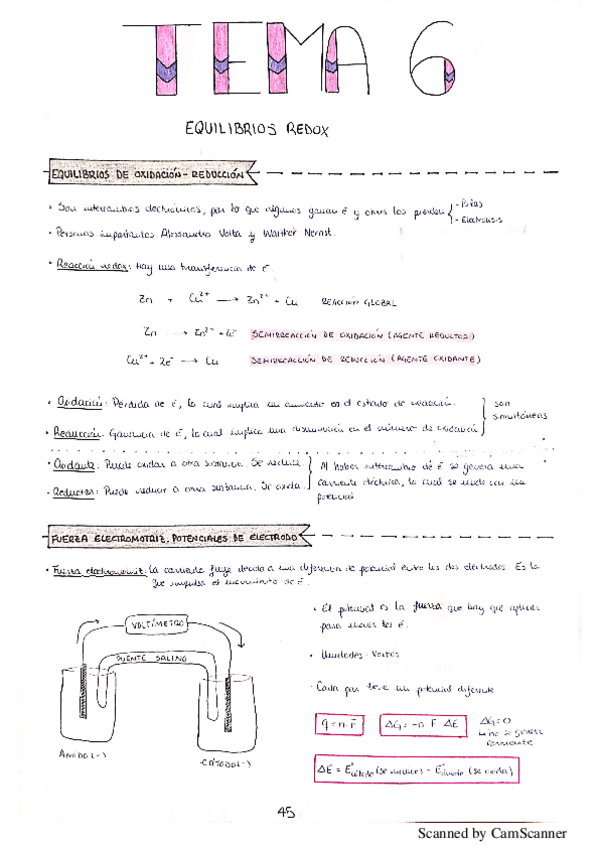 TEMA 6
EQUILIBRIOS REDOX
EQUILIBRIOS DE OXIDACIÓN-REDUCCIÓN
• Son intercambios electrónicos, por lo que algunos ganan é y otros los pierden { - Pilas
- Electrolisis
• Personas importantes Alessandro Volta y Walther Nernst.
• Reacción redox: Hay una transferencia de é.
Zn + Cu²⁺ → Zn²⁺ + Cu REACCIÓN GLOBAL
Zn → Zn²⁺ + 2é SEMIRREACCIÓN DE OXIDACIÓN (AGENTE REDUCTOR)
Cu²⁺ + 2é → Cu SEMIRREACCIÓN DE REDUCCIÓN (AGENTE OXIDANTE)
• Oxidación: Pérdida de é, lo cual implica un aumento en el estado de oxidación. } son
simultáneas
• Reducción: Ganancia de é, lo cual implica una disminución en el número de oxidación
• Oxidante: Puede oxidar a otra sustancia. Se reduce. } Al haber intercambio de é se genera una
corriente eléctrica, la cual se mide con
• Reductor: Puede reducir a otra sustancia. Se oxida.
potencial
FUERZA ELECTROMOTRIZ, POTENCIALES DE ELECTRODO
• Fuerza electromotriz: La corriente fluye debido a una diferencia de potencial entre los dos electrodos. Es la
que impulsa el movimiento de é.
VOLTÍMETRO
PUENTE SALINO
ÁNODO (-)
CÁTODO (-)
• El potencial es la fuerza que hay que aplicar
para mover los é.
• Unidades: Voltios
· Cada par tiene un potencial diferente
q = n · F
ΔG = -n F ΔE
ΔG = 0
no se genera
corriente
ΔE = E°cátodo (se reduce) - E°ánodo (se oxida)
45
Scanned by CamScanner